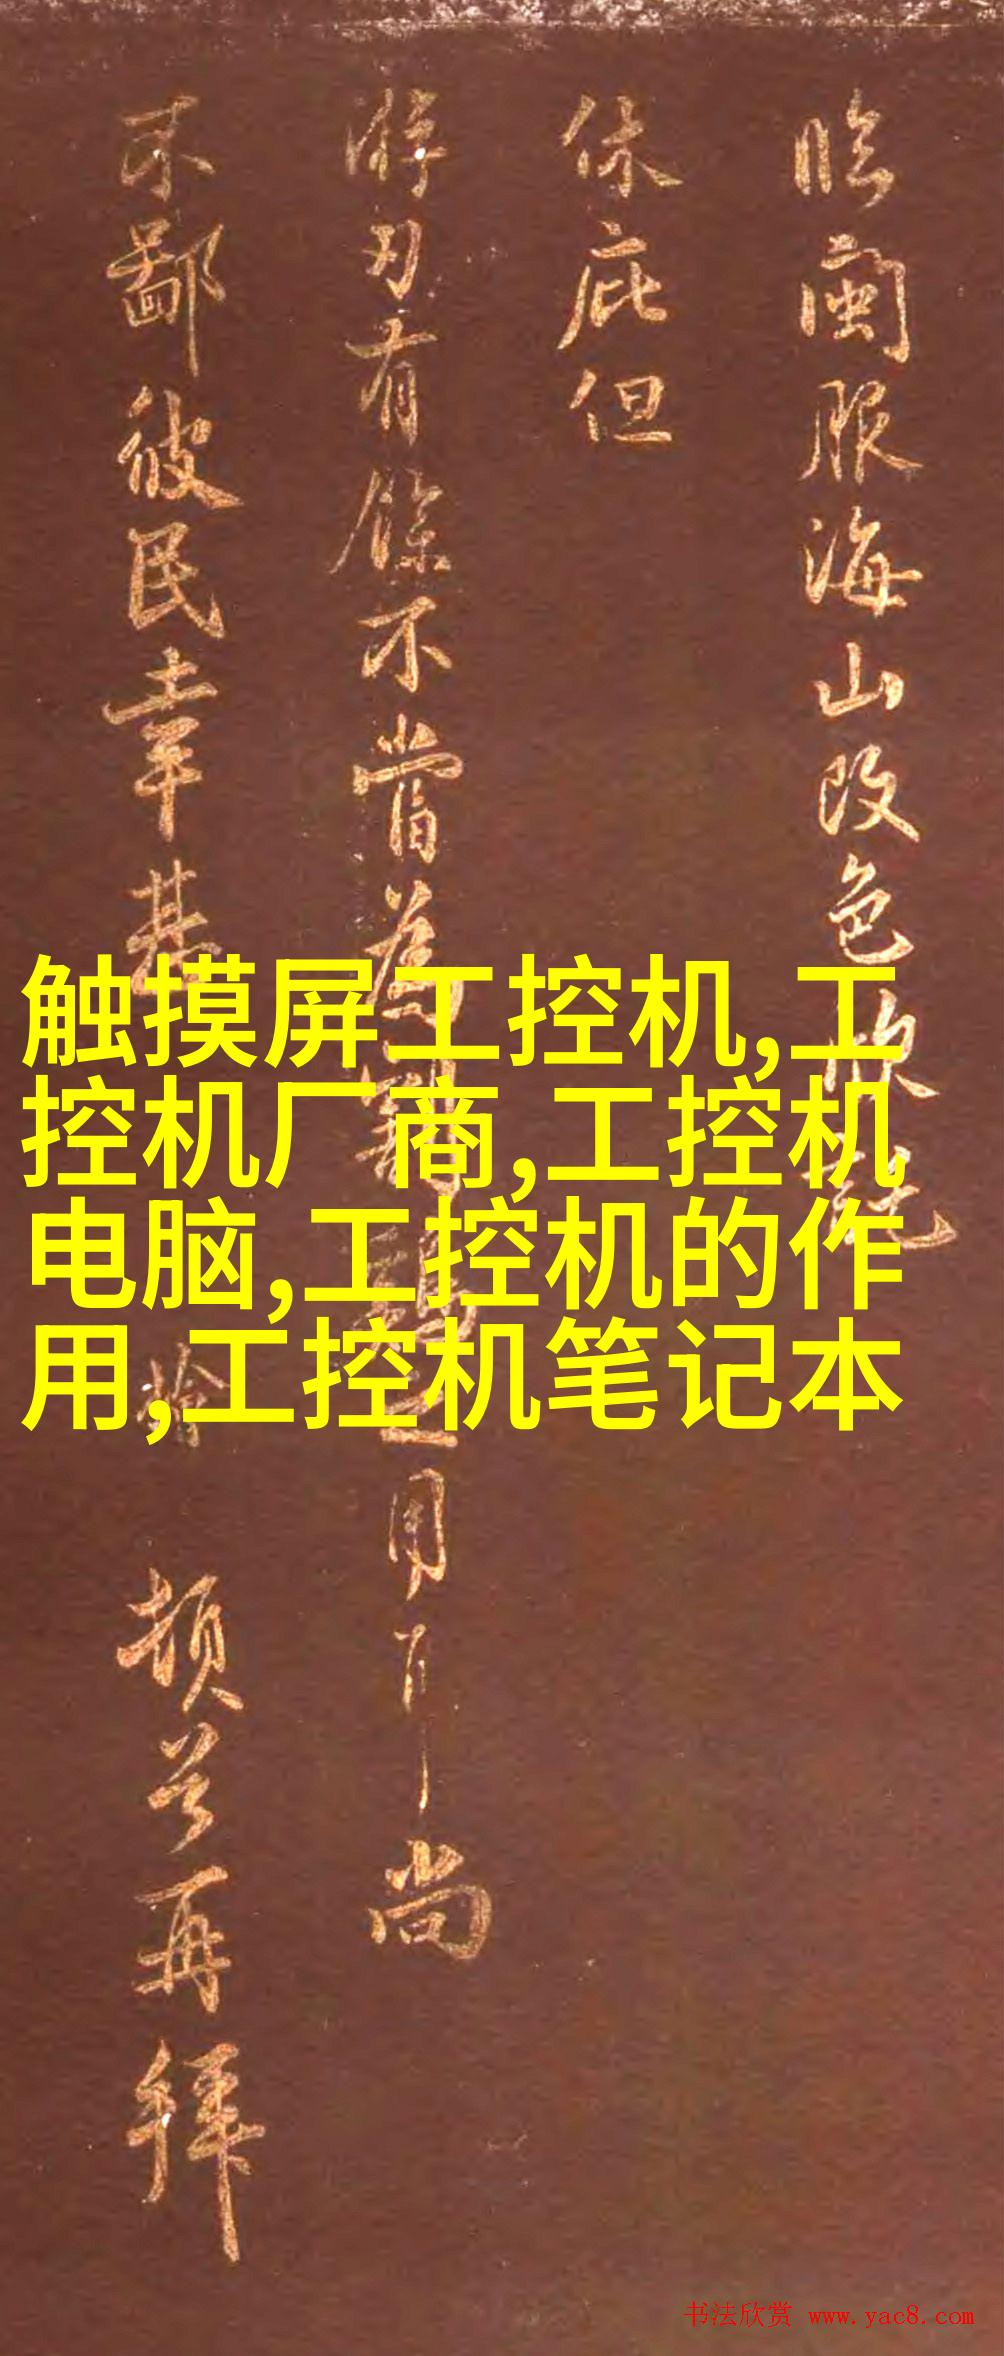 臨闽服海山改色欣
休庇但
游刃有餘不嘗為
用尚
不鄙彼民幸甚
頓首再拜
触摸屏工控机,工
控机厂商,工控机
电脑,工控机的作
用,工控机笔记本
书法欣赏 www.yac8.com